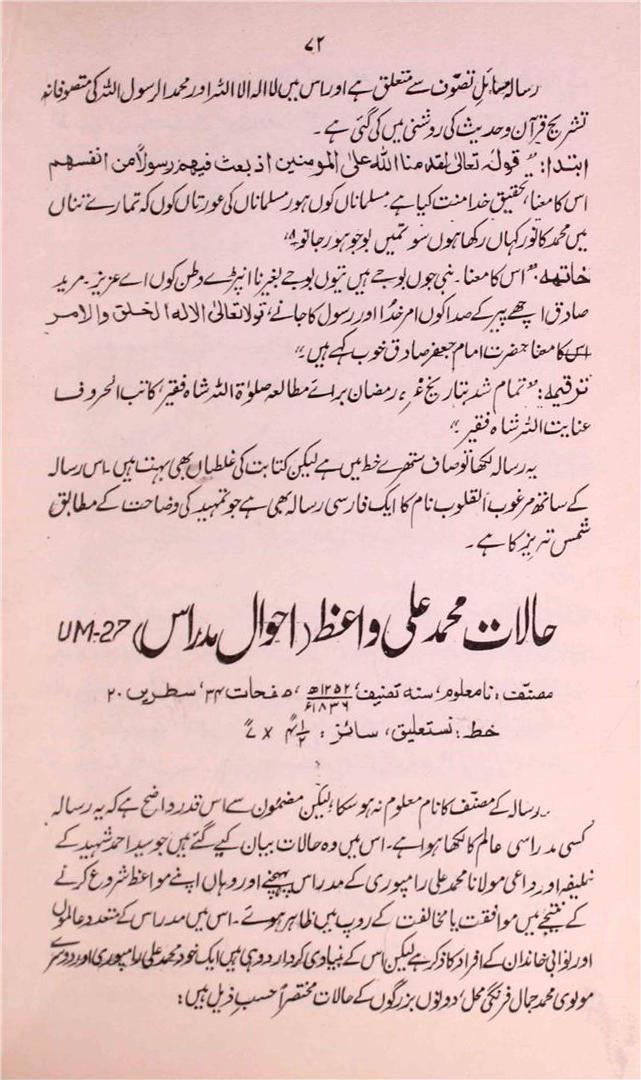 ۷۲
رسالہ مسائلِ تصوّف سے متعلق ہے اور اس میں لا الہ الا اللہ اور محمد الرسول اللہ کی متصوفانہ
تشریح قرآن و حدیث کی روشنی میں کی گئی ہے۔
ابتدا: "قولہٗ تعالیٰ لقد منا اللہ علیٰ المومنین اذ بعث فیھم رسولاً من انفسھم
اس کا معنا، تحقیق خدا منت کیا ہے مسلماناں کوں ہور مسلماناں کی عورتاں کوں کہ تمارے تناں
میں محمد کا نور کہاں رکھا ہوں سو تمیں بوجو ہور جانو۔"
خاتمہ: "اس کا معنا۔ نبی جوں بوجے ہیں نیوں بوجے بغیر نا انپڑے وطن کوں اے عزیز۔ مرید
صادق اچھے پیر کے صدا کوں امر خدا اور رسول کا جانے، قولا تعالیٰ الا لہ الخلق والامر
اس کا معنا حضرت امام جعفر صادق خوب کہے ہیں۔"
ترقیمہ: "تمام شد بتاریخ غرہ رمضان برائے مطالعہ صلوٰۃ اللہ شاہ فقیر، کاتب الحروف
عنایت اللہ شاہ فقیر۔"
یہ رسالہ لکھا تو صاف ستھرے خط میں ہے لیکن کتابت کی غلطیاں بھی بہت ہیں۔ اس رسالہ
کے ساتھ مرغوب القلوب نام کا ایک فارسی رسالہ بھی ہے جو تمہید کی وضاحت کے مطابق
شمس تبریز کا ہے۔
حالات محمد علی واعظ (احوال مدراس) UM-27
مصنف: نامعلوم، سنہ تصنیف: ۱۲۵۲ھ/۱۸۳۶ء، صفحات ۳۴، سطریں ۲۰
خط: نستعلیق، سائز: ۴ ۱/۲" × ۷"
رسالہ کے مصنف کا نام معلوم نہ ہو سکا، لیکن مضمون سے اس قدر واضح ہے کہ یہ رسالہ
کسی مدراسی عالم کا لکھا ہوا ہے۔ اس میں وہ حالات بیان کیے گئے ہیں جو سید احمد شہید کے
خلیفہ اور داعی مولانا محمد علی رامپوری کے مدراس پہنچنے اور وہاں اپنے مواعظ شروع کرنے
کے نتیجے میں موافقت یا مخالفت کے روپ میں ظاہر ہوئے۔ اس میں مدراس کے متعدد عالموں
اور نوابی خاندان کے افراد کا ذکر ہے لیکن اس کے بنیادی کردار دو ہی ہیں ایک خود محمد علی رامپوری اور دوسرے
مولوی محمد جمال فرنگی محل، دونوں بزرگوں کے حالات مختصراً حسب ذیل ہیں: